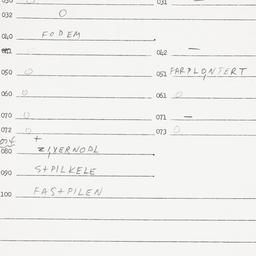 030 O 031 —
032 O
040 FODEM
041 042 —
050 O 051 FARPLONTERT
060 O 061 O
070 O 071 —
072 O 073 O
074 +
080 ZIVERNODL
090 S+PILKELE
100 FAS+PILEN